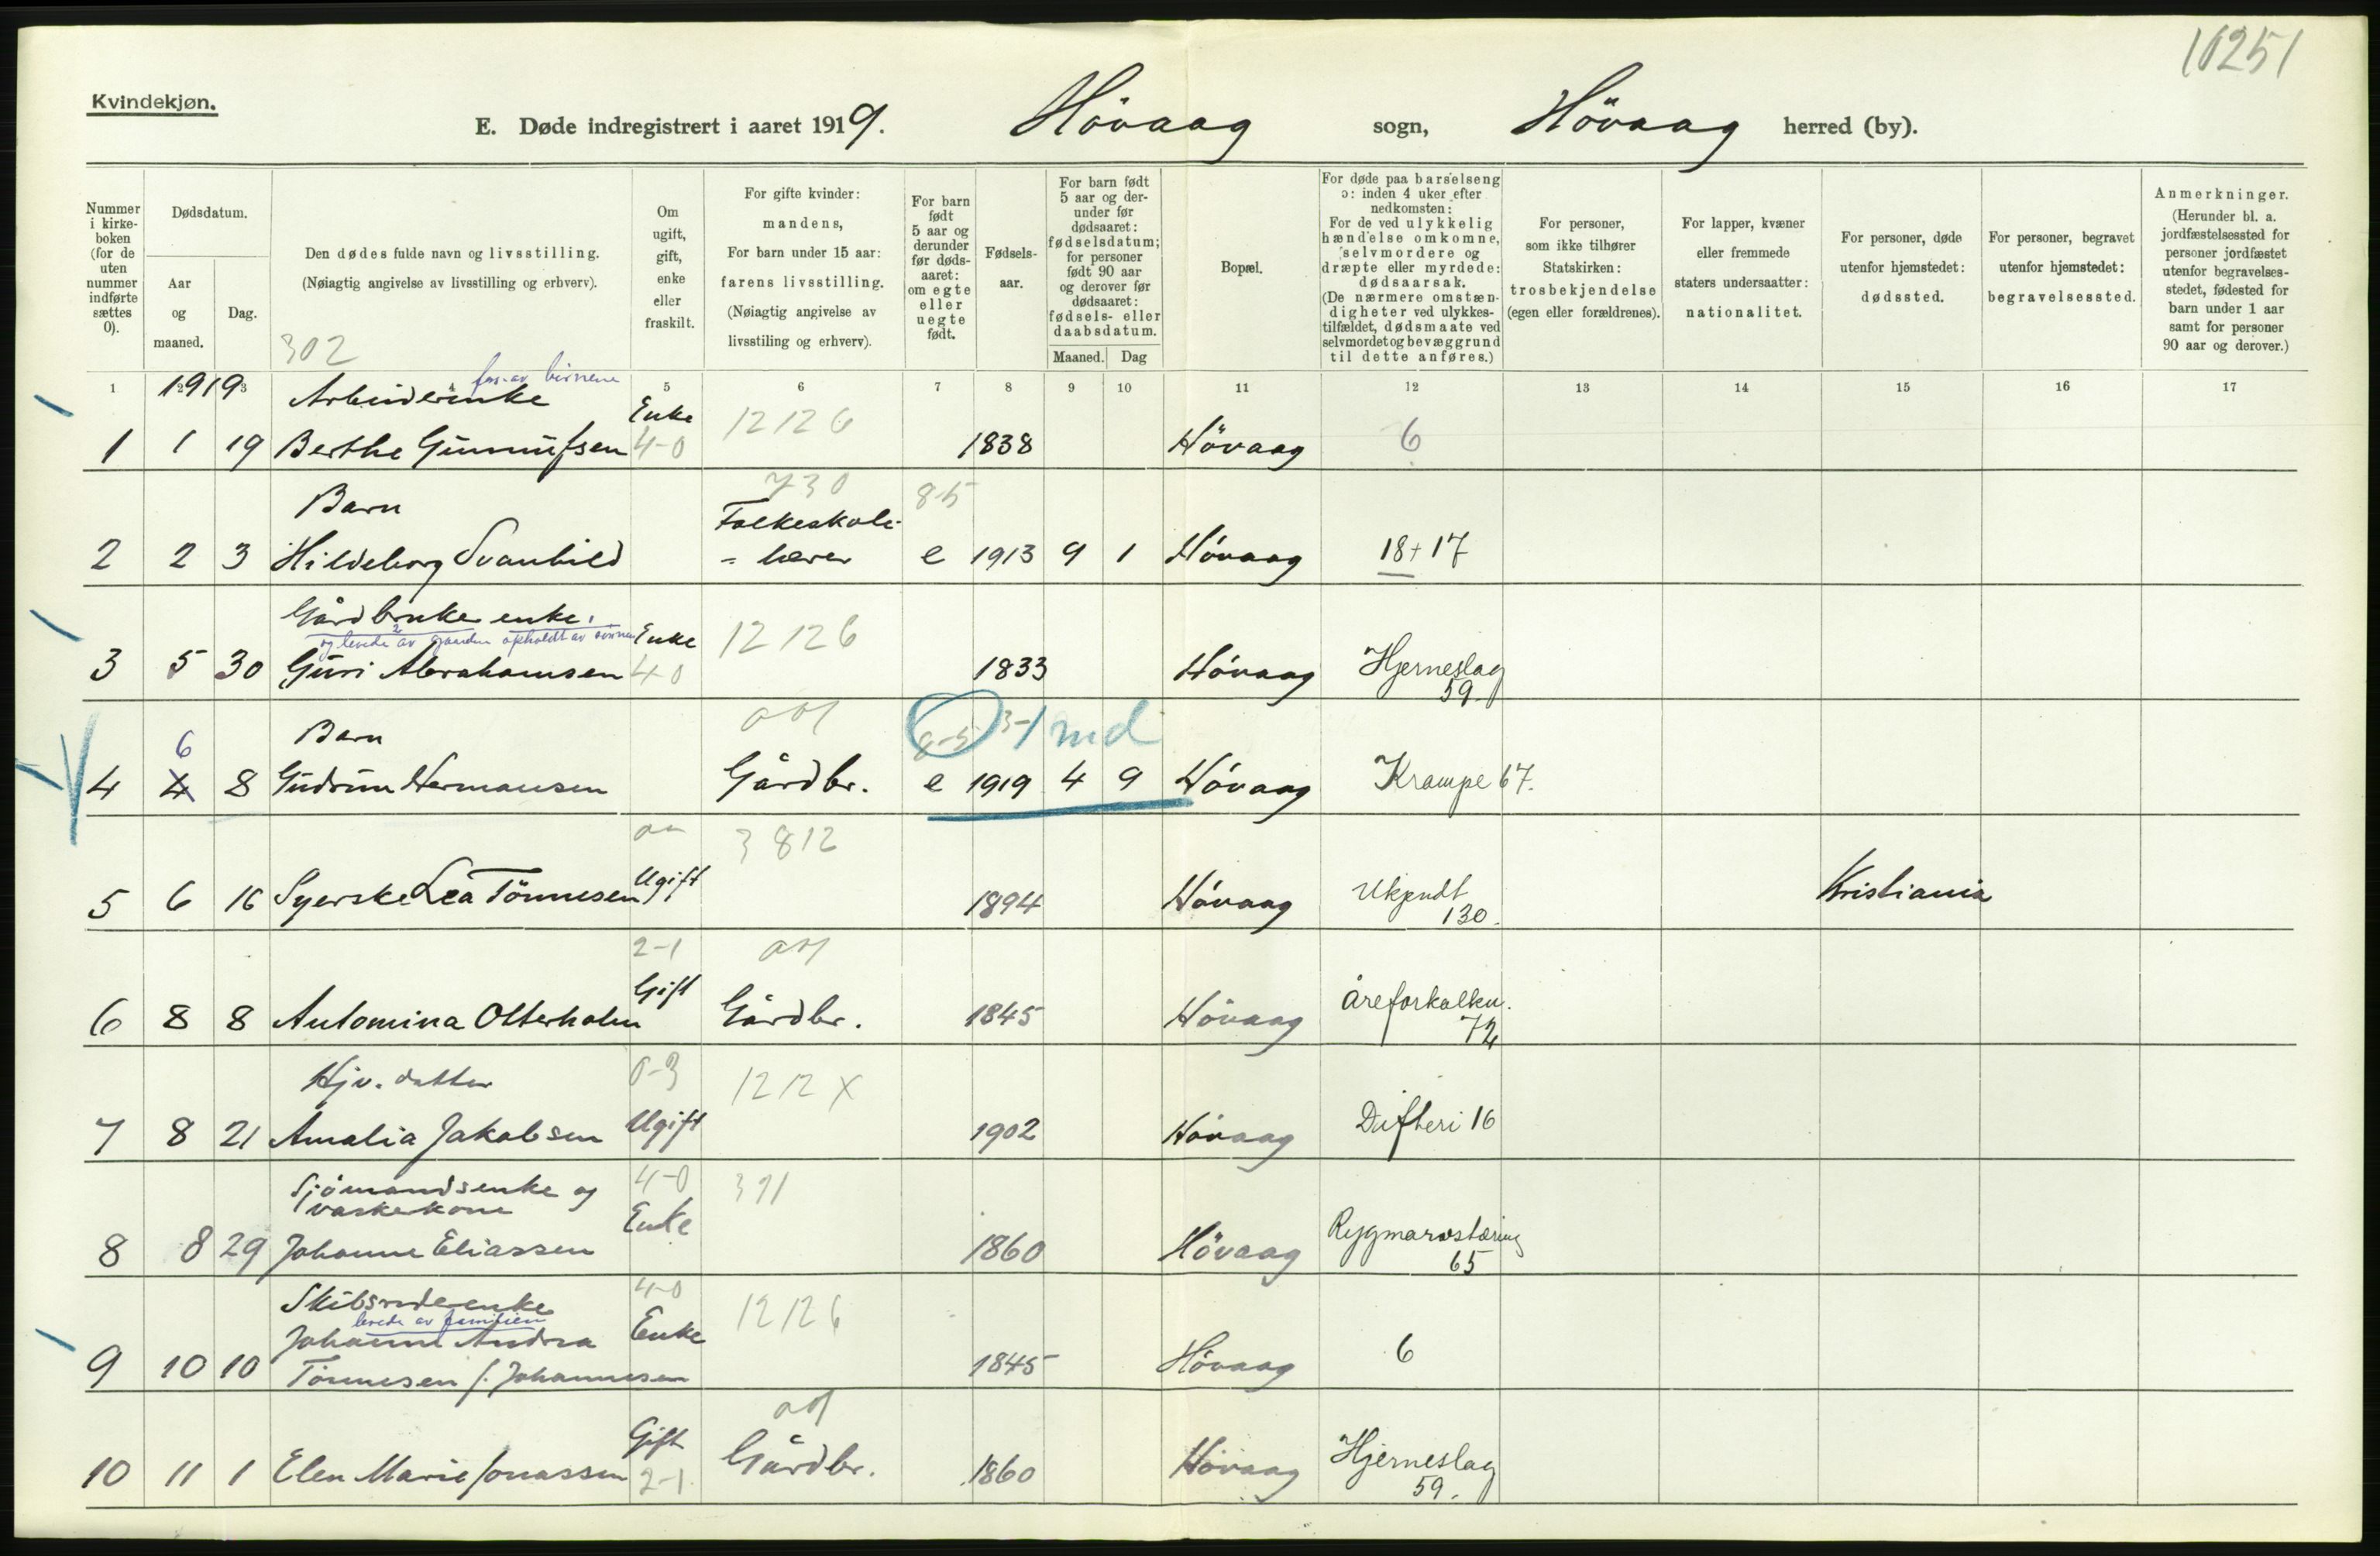 10251
Kvindekjøn.
E. Døde indregistrert i aaret 1919. Hövaag sogn, Hövaag herred (by).
Nummer i kirkeboken (for de uten nummer indførte sættes 0).
Dødsdatum.
Aar og maaned.
Dag.
Den dødes fulde navn og livsstilling.
(Nøiagtig angivelse av livsstilling og erhverv).
302
Om ugift, gift, enke eller fraskilt.
For gifte kvinder: mandens,
For barn under 15 aar: farens livsstilling.
(Nøiagtig angivelse av livsstiling og erhverv).
For barn født 5 aar og derunder før dødsaaret: om egte eller uegte født.
Fødselsaar.
For barn født 5 aar og derunder før dødsaaret: fødselsdatum; for personer født 90 aar og derover før dødsaaret: fødsels- eller daabsdatum.
Maaned. Dag
Bopæl.
For døde paa barselseng ɔ: inden 4 uker efter nedkomsten:
For de ved ulykkelig hændelse omkomne, selvmordere og dræpte eller myrdede: dødsaarsak.
(De nærmere omstændigheter ved ulykkestilfældet, dødsmaate ved selvmordet og bevæggrund til dette anføres.)
For personer, som ikke tilhører Statskirken: trosbekjendelse (egen eller forældrenes).
For lapper, kvæner eller fremmede staters undersaatter: nationalitet.
For personer, døde utenfor hjemstedet: dødssted.
For personer, begravet utenfor hjemstedet: begravelsessted.
Anmerkninger.
(Herunder bl. a. jordfæstelsessted for personer jordfæstet utenfor begravelsesstedet, fødested for barn under 1 aar samt for personer 90 aar og derover.)
1 2 3 4 5 6 7 8 9 10 11 12 13 14 15 16 17
1919
Arbeiderenke
1 1 19 Berthe Gunnufsen Enke 4-0 12126 1838 Hövaag 6
Barn 730 8-5
2 2 3 Hildeborg Svanhild Folkeskole-lærer e 1913 9 1 Hövaag 18+17
Gårdbruke enke.
og levede av gaarden opholdt av
3 5 30 Guri Abrahamsen Enke 4 0 12126 1833 Hövaag Hjerneslag 59.
6 Barn 8-5 3-1 md
4 4 8 Gudrun Hermansen Gårdbr. e 1919 4 9 Hövaag Krampe 67.
5 6 16 Syerske Lea Tönnesen Ugift 3812 1894 Hövaag Ukjendt 130. Kristiania
2-1
6 8 8 Antomina Olterholm Gift Gårdbr. 1845 Hövaag Åreforkalkn. 72
Hjv. datter 0-3 1212X
7 8 21 Amalia Jakobsen Ugift 1902 Hövaag Difteri 16
Sjömandsenke og vaskekone 4-0 391
8 8 29 Johanne Eliassen Enke 1860 Hövaag Rygmarvstæring 65
Skibsrederenke 4-0 12126
levede av familien
9 10 10 Johanne Andrea Tönnesen f. Johannesen Enke 1845 Hövaag 6
10 11 1 Elen Marie Jonassen Gift 2-1 Gårdbr. 1860 Hövaag Hjerneslag 59.